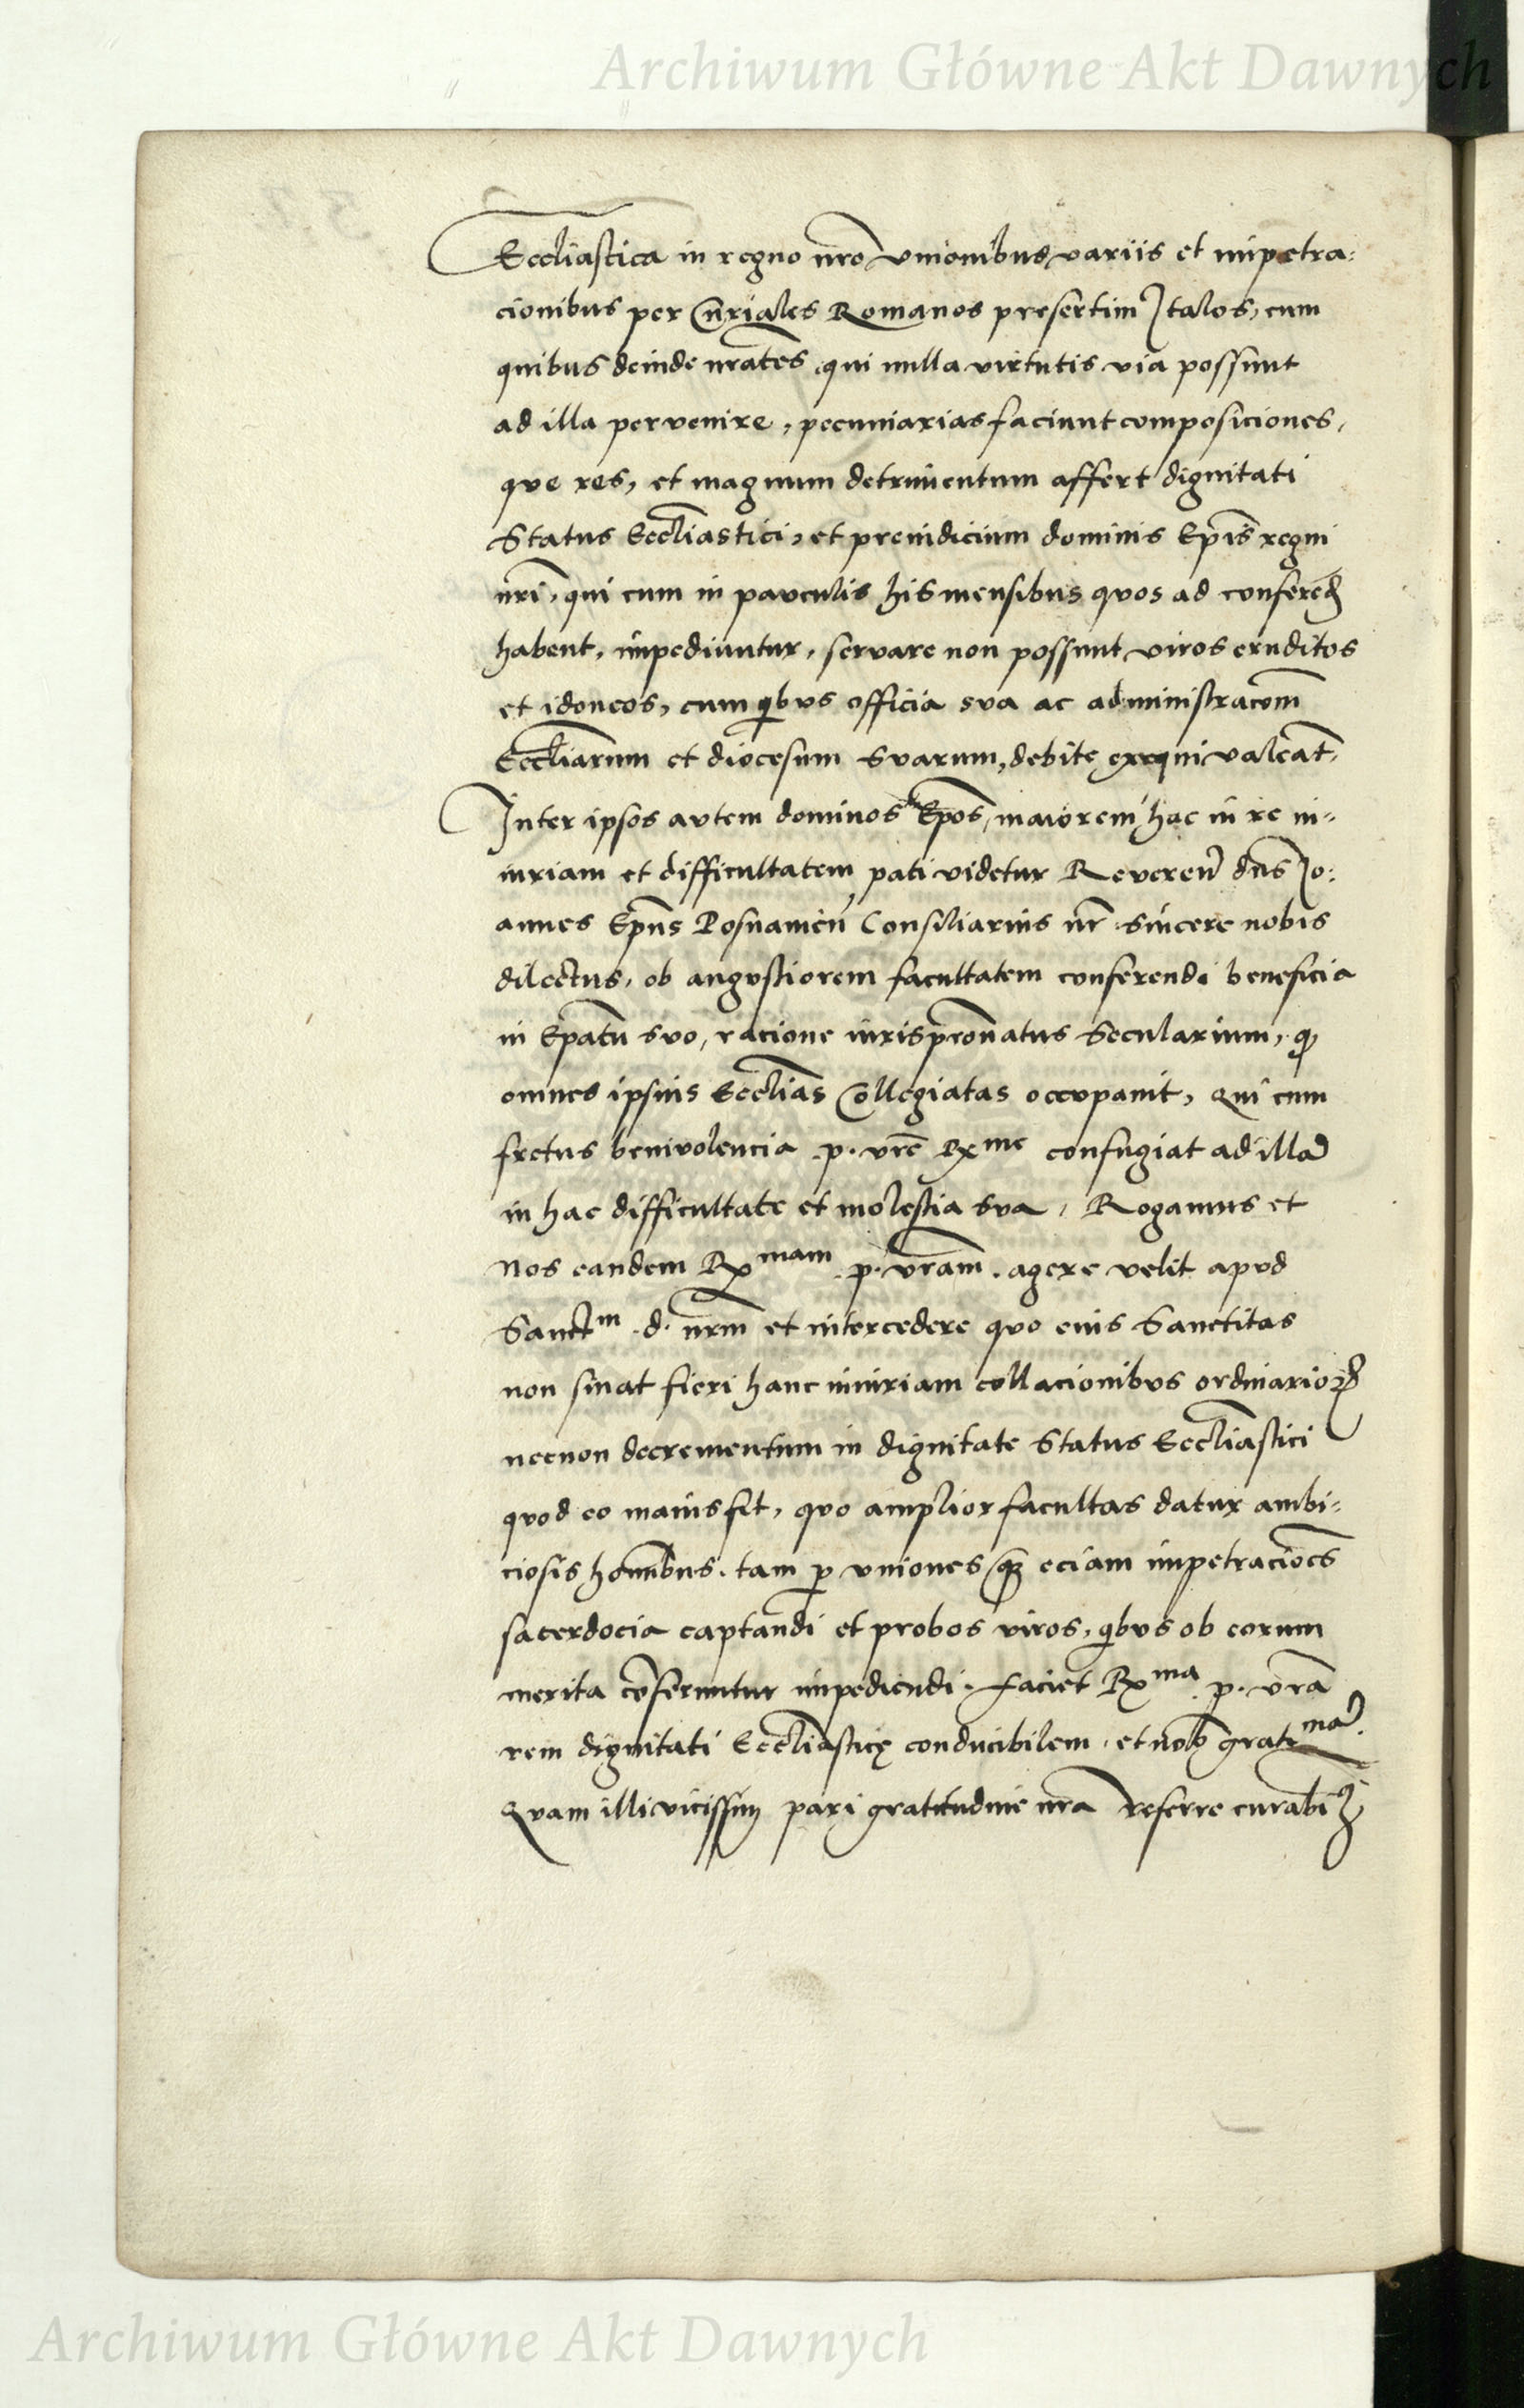 Archiwum Główne Akt Dawnych
Eccl̄iastica in regno nr̄o vnionibus variis et impetra:
cionibus per Curiales Romanos presertim Italos, cum
quibus deinde nr̄ates qui nulla virtutis via possunt
ad illa pervenire, pecuniarias faciunt composiciones,
que res, et magnum detrimentum affert dignitati
Status Eccl̄iastici, et preiudicium dominis Ep̄is regni
nr̄i, qui cum in pauculis his mensibus quos ad conferēd
habent, impediuntur, servare non possunt viros eruditos
et idoneos, cum qibvs officia sva ac administracōm
Eccl̄iarum et diocesum svarum, debite exequi valeat̄.
Inter ipsos avtem dominos Ep̄os, maiorem hac in re in-
iuriam et difficultatem pati videtur Reveren̄ dn̄s Jo:
annes Ep̄us Posnanien̄ Consiliarius nr̄ sincere nobis
dilectus, ob angvstiorem facultatem conferendi beneficia
in Ep̄atu svo, racione iurispr̄onatus Secularium, q
omnes ipsius Eccl̄ias Collegiatas occvpauit, Qui cum
fretus benivolencia p. vr̄e Rme confugiat ad illā
in hac difficultate et molestia sva, Rogamus et
Nos eandem Rmam p. vr̄am. agere velit apvd
Sanctm d. nr̄m et intercedere qvo eius Sanctitas
non sinat fieri hanc iniuriam collacionibvs ordinarioꝝ
necnon decrementum in dignitate Status Eccl̄iastici
qvod eo maius fit, qvo amplior facultas datur ambi:
ciosis hom̄ibus. tam p vniones qȝ eciam impetraciōes
sacerdocia captandi et probos viros, qibvs ob eorum
merita cōferuntur impediendi. faciet Rma p. vr̄a
rem dignitati Eccl̄iasticę conducibilem, et nob̄ gratmā.
Qvam illi vicissim pari gratitudine nr̄a referre curabiꝰ
Archiwum Główne Akt Dawnych